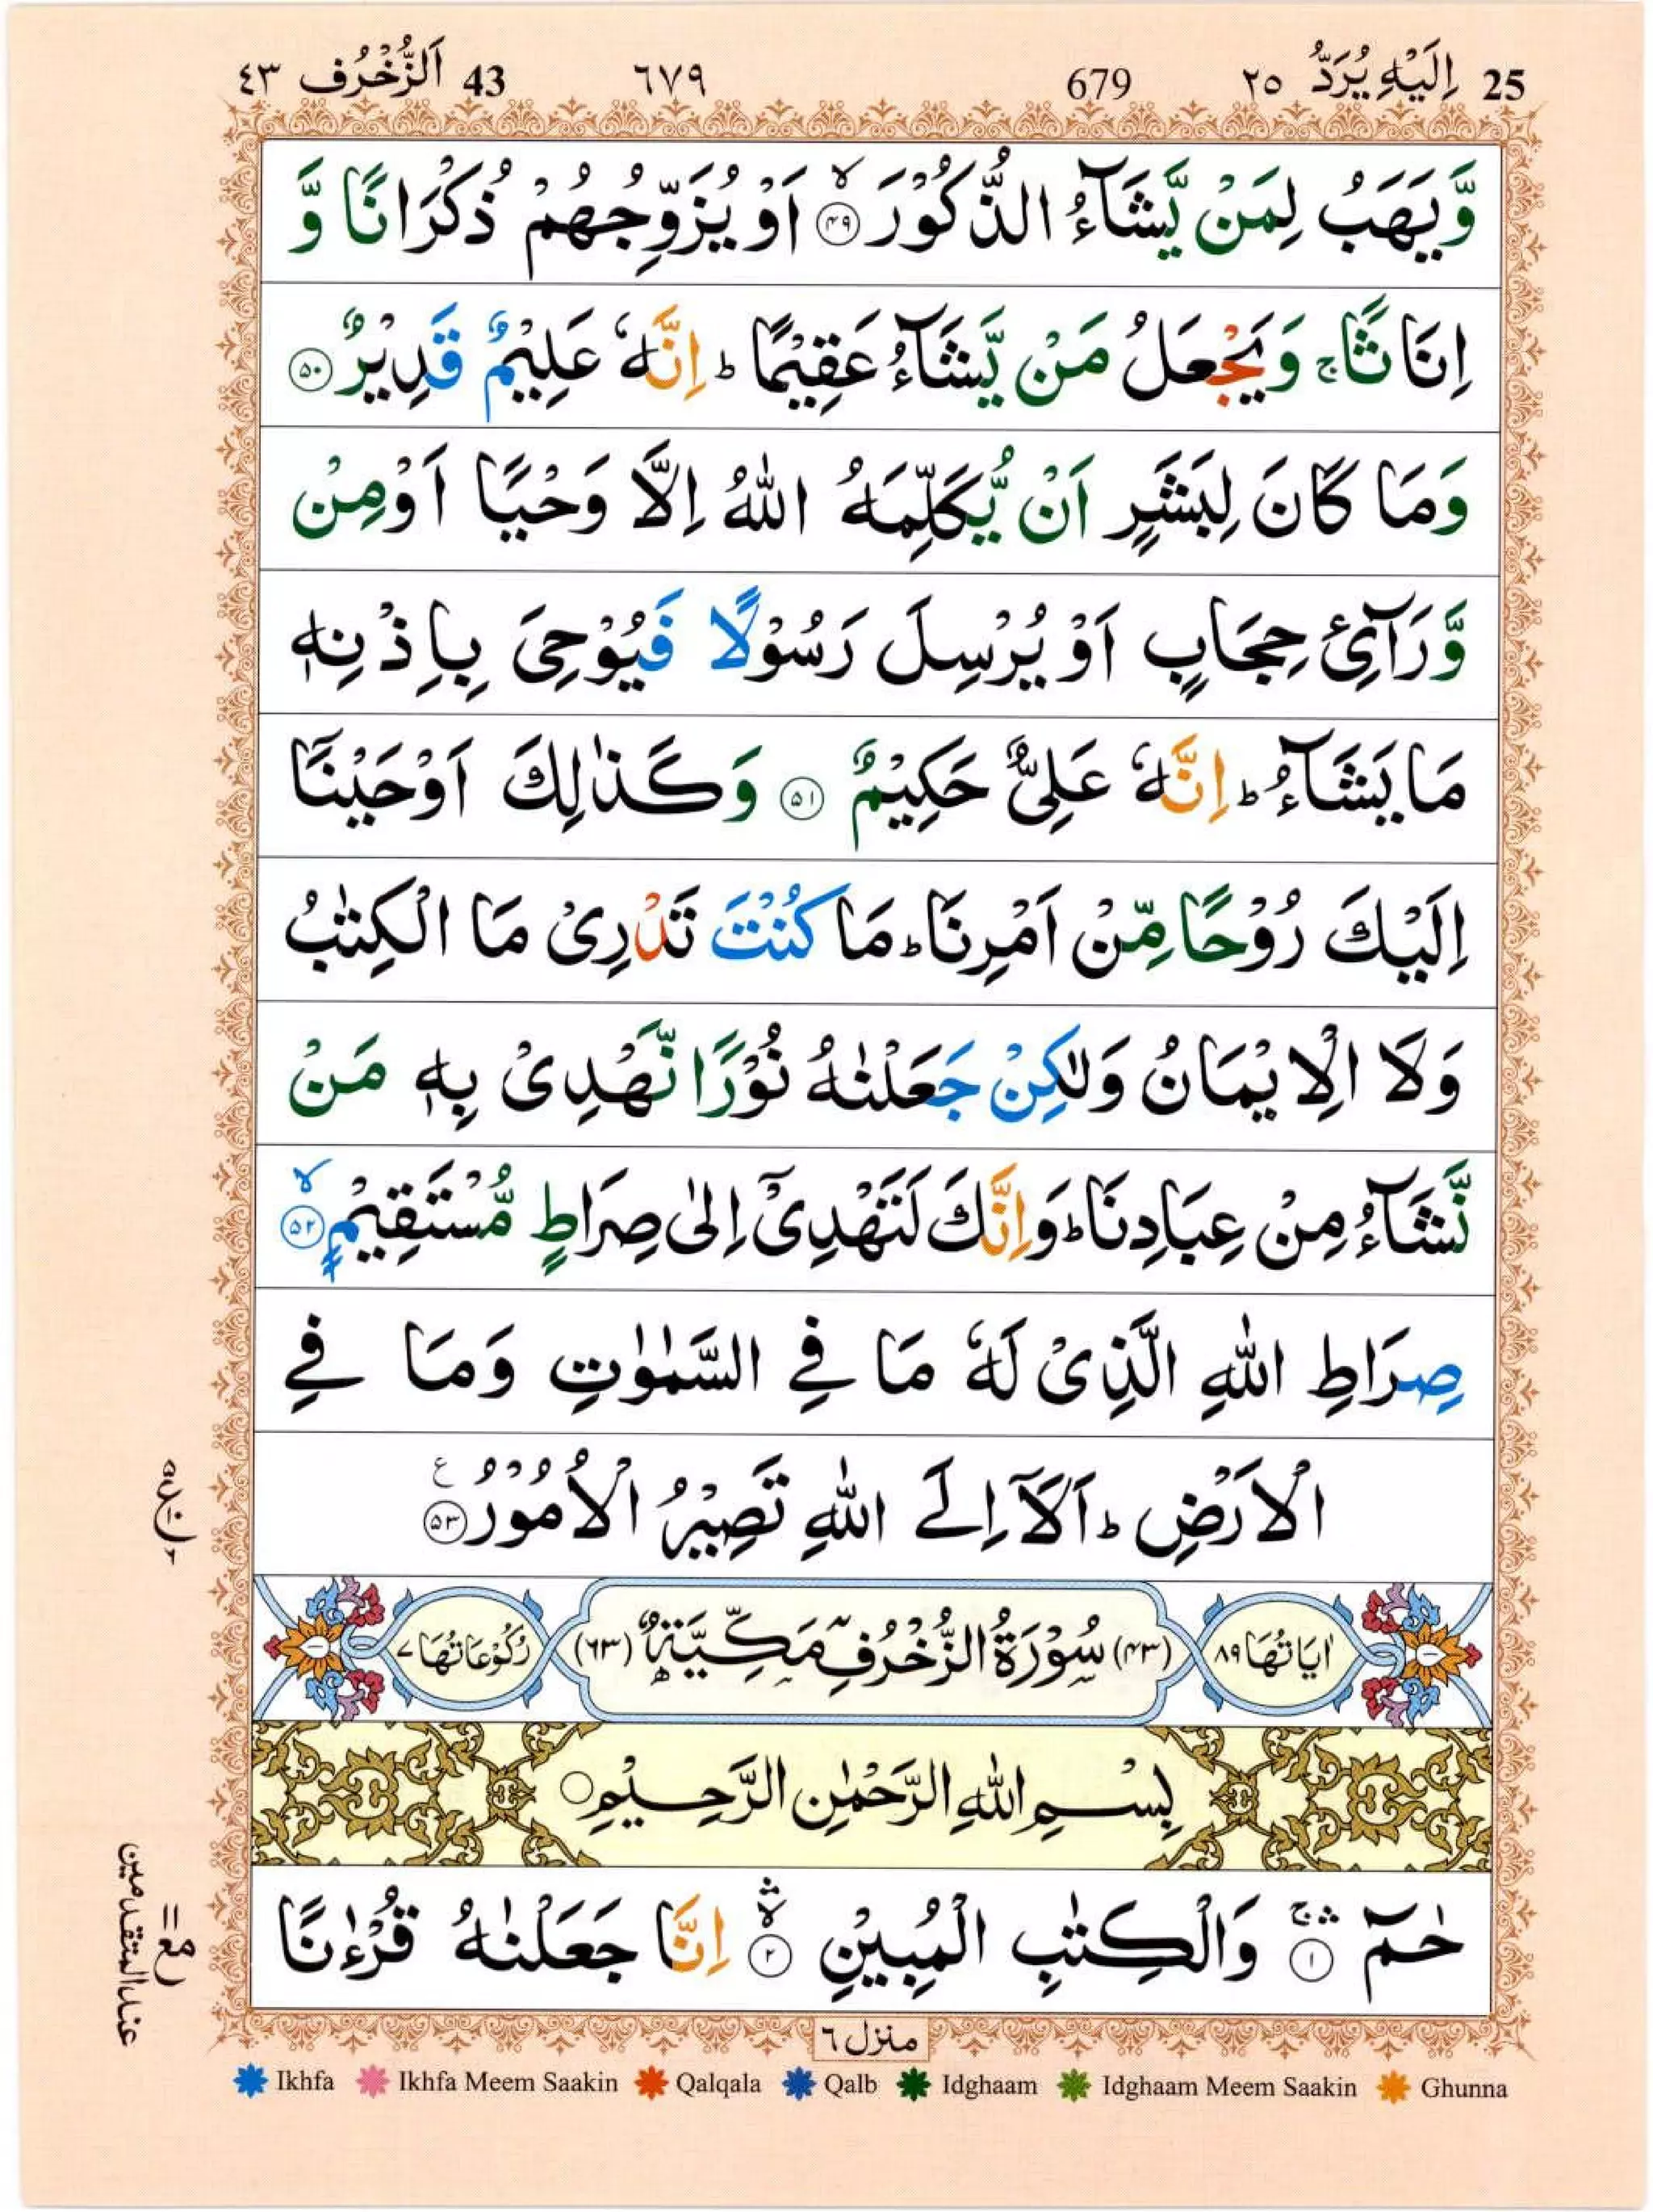 25 اِلَیْهِ یُرَدُّ ٢٥ 679 ٦٧٩ 43 اَلزُّخْرُف ٤٣
وَّیَهَبُ لِمَنْ یَّشَآءُ الذُّكُوْرَ ۙ﴿۴۹﴾ اَوْ یُزَوِّجُهُمْ ذُكْرَانًا وَّ
اِنَاثًا ۚ وَیَجْعَلُ مَنْ یَّشَآءُ عَقِیْمًا ؕ اِنَّهٗ عَلِیْمٌ قَدِیْرٌ ﴿۵۰﴾
وَمَا كَانَ لِبَشَرٍ اَنْ یُّكَلِّمَهُ اللّٰهُ اِلَّا وَحْیًا اَوْ مِنْ
وَّرَآئِ حِجَابٍ اَوْ یُرْسِلَ رَسُوْلًا فَیُوْحِیَ بِاِذْنِهٖ
مَا یَشَآءُ ؕ اِنَّهٗ عَلِیٌّ حَكِیْمٌ ﴿۵۱﴾ وَكَذٰلِكَ اَوْحَیْنَاۤ
اِلَیْكَ رُوْحًا مِّنْ اَمْرِنَا ؕ مَا كُنْتَ تَدْرِیْ مَا الْكِتٰبُ
وَلَا الْاِیْمَانُ وَلٰكِنْ جَعَلْنٰهُ نُوْرًا نَّهْدِیْ بِهٖ مَنْ
نَّشَآءُ مِنْ عِبَادِنَا ؕ وَاِنَّكَ لَتَهْدِیْۤ اِلٰی صِرَاطٍ مُّسْتَقِیْمٍ ۙ﴿۵۲﴾
صِرَاطِ اللّٰهِ الَّذِیْ لَهٗ مَا فِی السَّمٰوٰتِ وَمَا فِی
الْاَرْضِ ؕ اَلَاۤ اِلَی اللّٰهِ تَصِیْرُ الْاُمُوْرُ ﴿۵۳﴾ ع
۵ ع ۱۰ ۶
اٰیَاتُهَا ٨٩ (۴۳) سُوْرَةُ الزُّخْرُفِ مَكِّیَّةٌ (٦٣) رُكُوْعَاتُهَا ٧
بِسْمِ اللّٰهِ الرَّحْمٰنِ الرَّحِیْمِ
حٰمٓ ۚۛ﴿۱﴾ وَالْكِتٰبِ الْمُبِیْنِ ۙۛ﴿۲﴾ اِنَّا جَعَلْنٰهُ قُرْءٰنًا
مع
عند المتقدمین
منزل ٦
Ikhfa Ikhfa Meem Saakin Qalqala Qalb Idghaam Idghaam Meem Saakin Ghunna